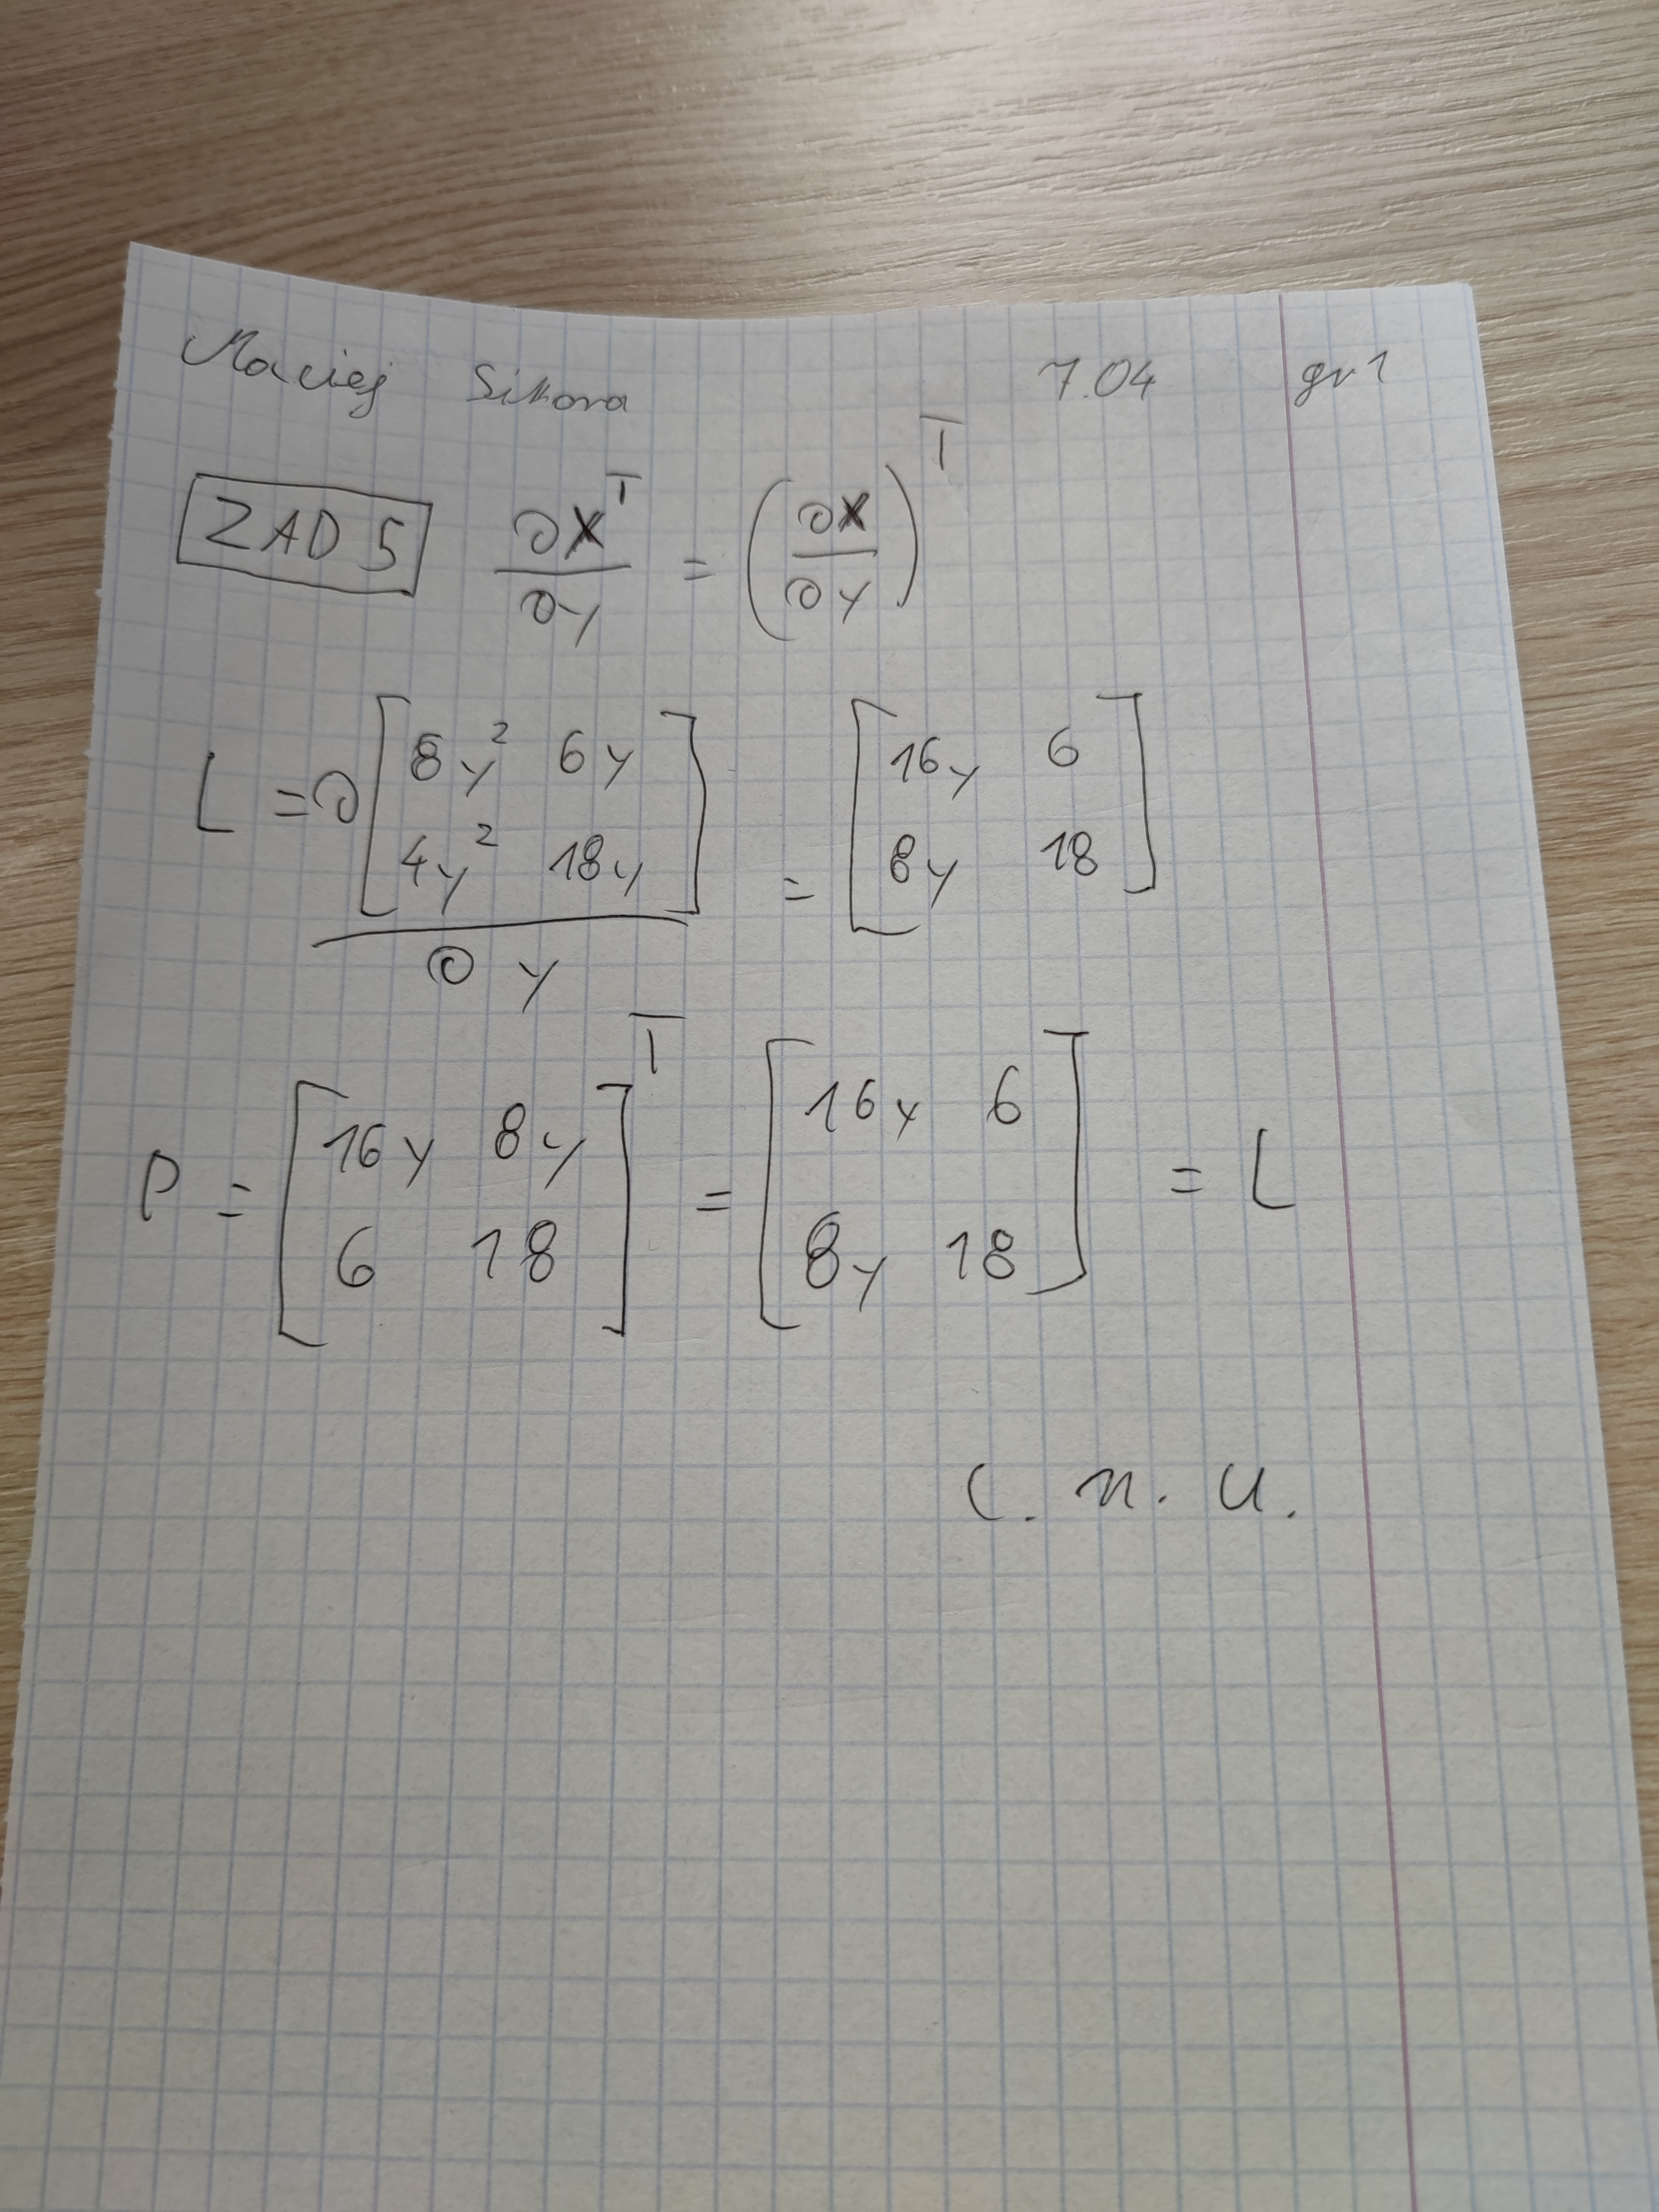 Maciej Sikora 7.04 gr 1
ZAD 5 ∂X^T / ∂y = (∂X / ∂y)^T
L = ∂ [8y² 6y ; 4y² 18y] / ∂y = [16y 6 ; 8y 18]
P = [16y 8y ; 6 18]^T = [16y 6 ; 8y 18] = L
C. N. U.